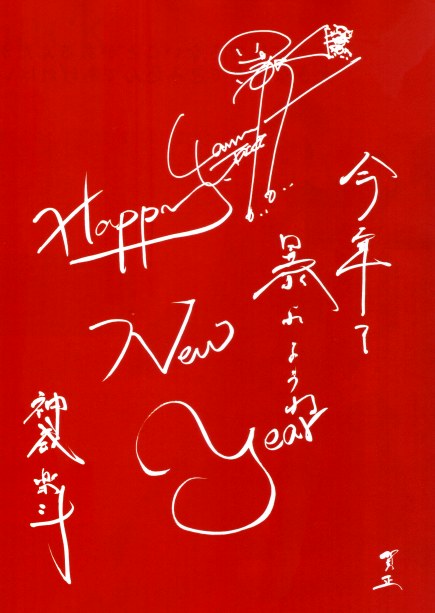 Happy
New
Year
今年も
暴れようね
神威楽斗
賀正